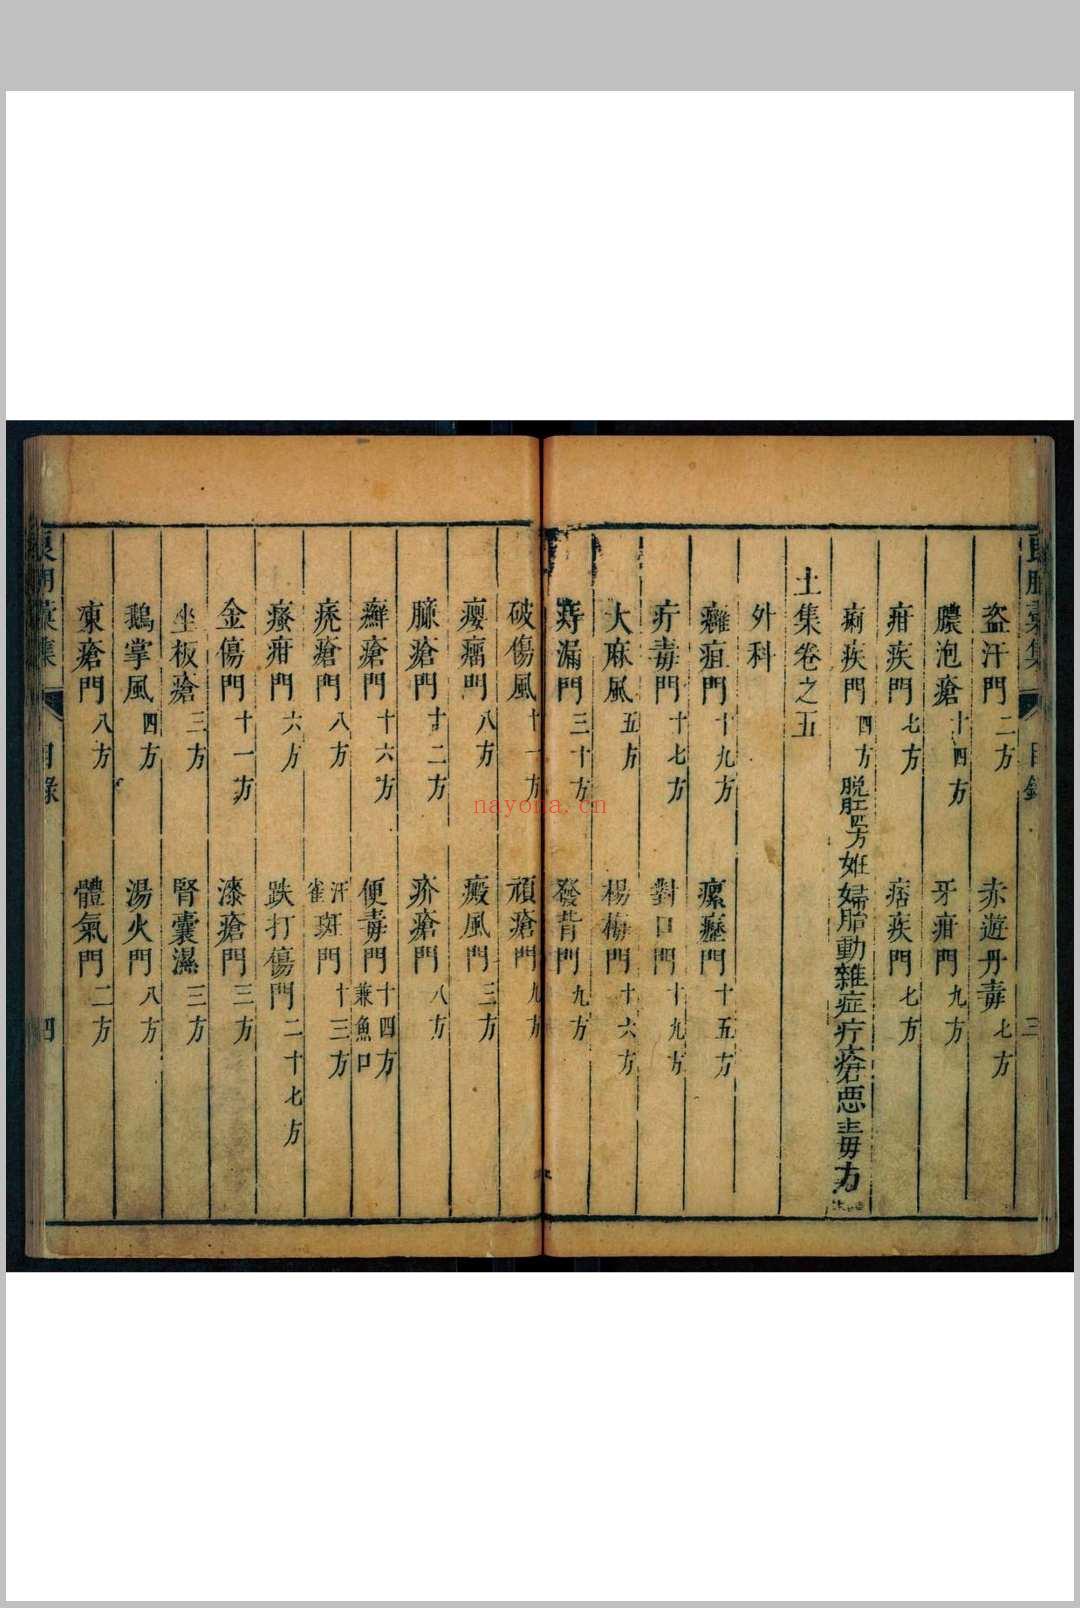 盜汗門二方　赤遊丹毒七方
膿泡瘡十四方　牙疳門九方
疳疾門七方　痞疾門七方
痢疾門四方　脱肛四方　姙婦胎動雜症疔瘡悪毒方
土集卷之五
外科
癰疽門十九方　瘰癧門十五方
疔毒門十七方　對口門十九方
大麻風五方　楊梅門十六方
痔漏門三十方　發背門九方
破傷風十一方　頑瘡門九方
癭瘤門八方　癜風門三方
臁瘡門十二方　疥瘡門八方
癬瘡門十六方　便毒門十四方兼魚口
禿瘡門八方　汗雀斑門十三方
瘙疳門六方　跌打傷門二十七方
金傷門十一方　漆瘡門三方
坐板瘡三方　腎囊濕三方
鵝掌風四方　湯火門八方
凍瘡門八方　體氣門二方
目錄　三
集　目錄　四
nayona.cn